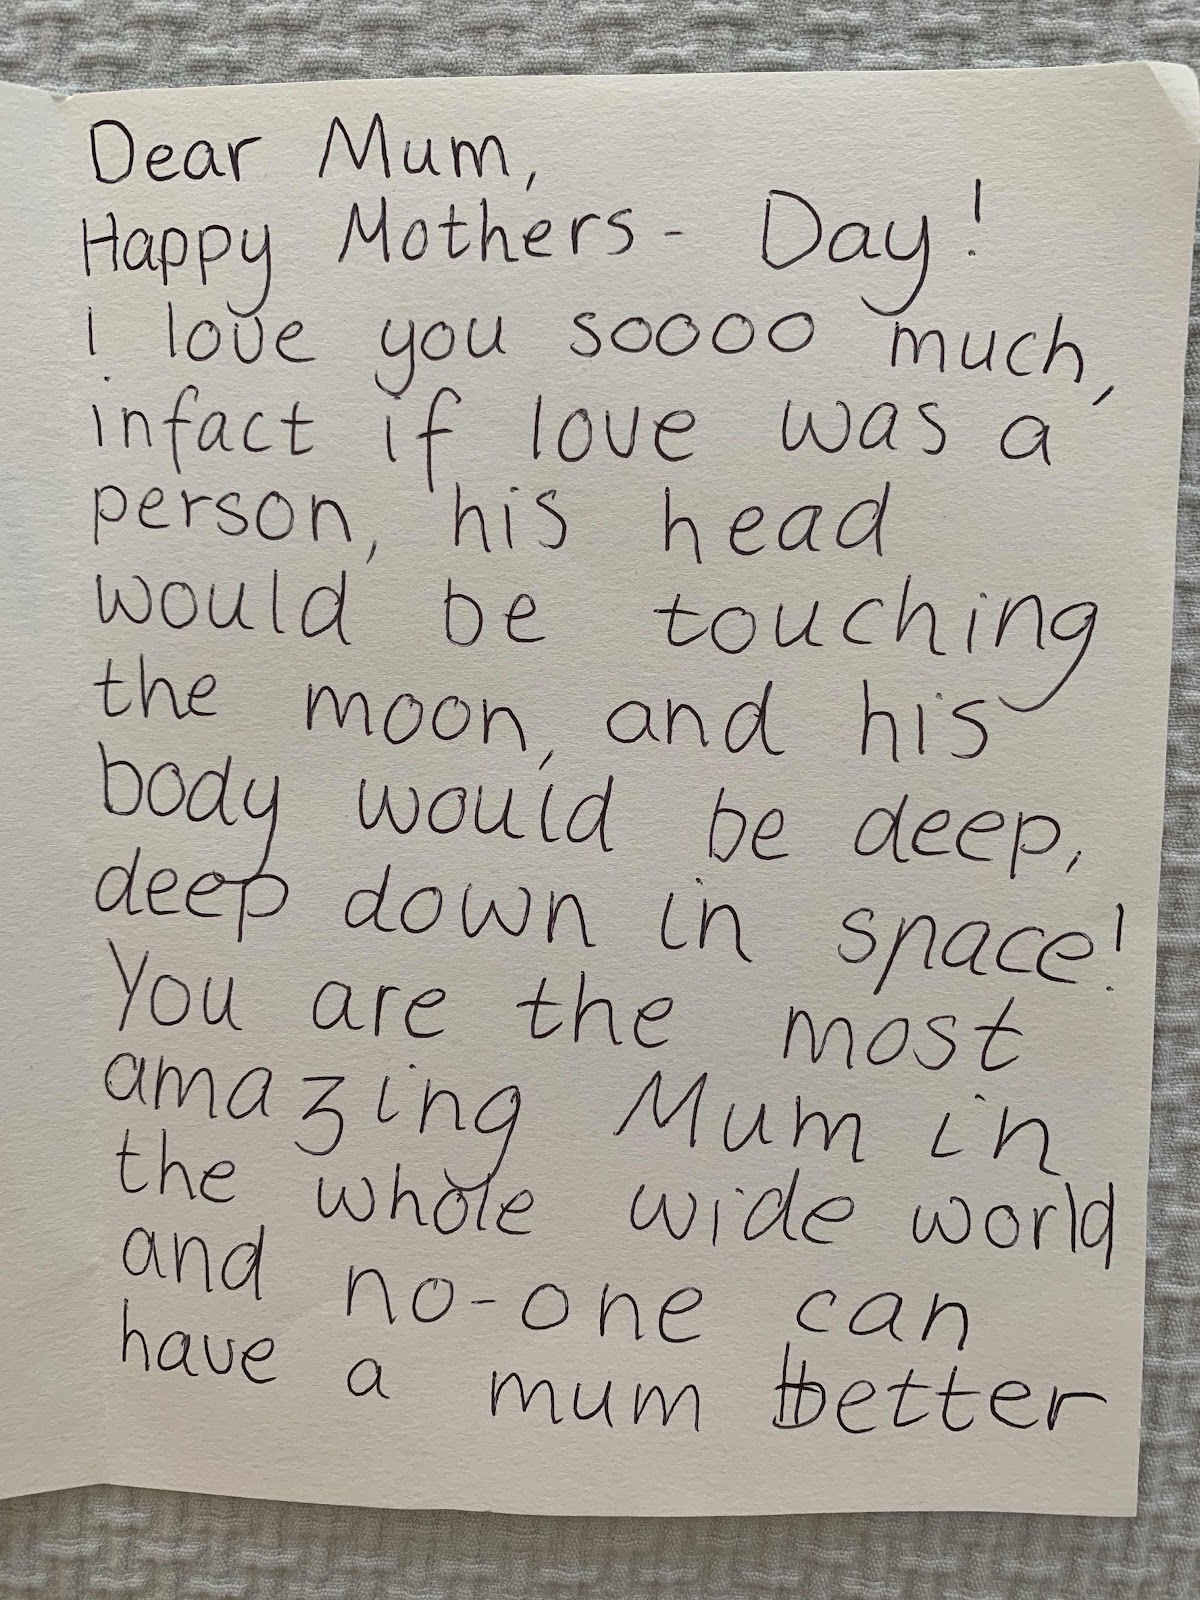 Dear Mum,
Happy Mothers- Day!
I love you soooo much,
infact if love was a
person, his head
would be touching
the moon, and his
body would be deep,
deep down in space!
You are the most
amazing Mum in
the whole wide world
and no-one can
have a mum better